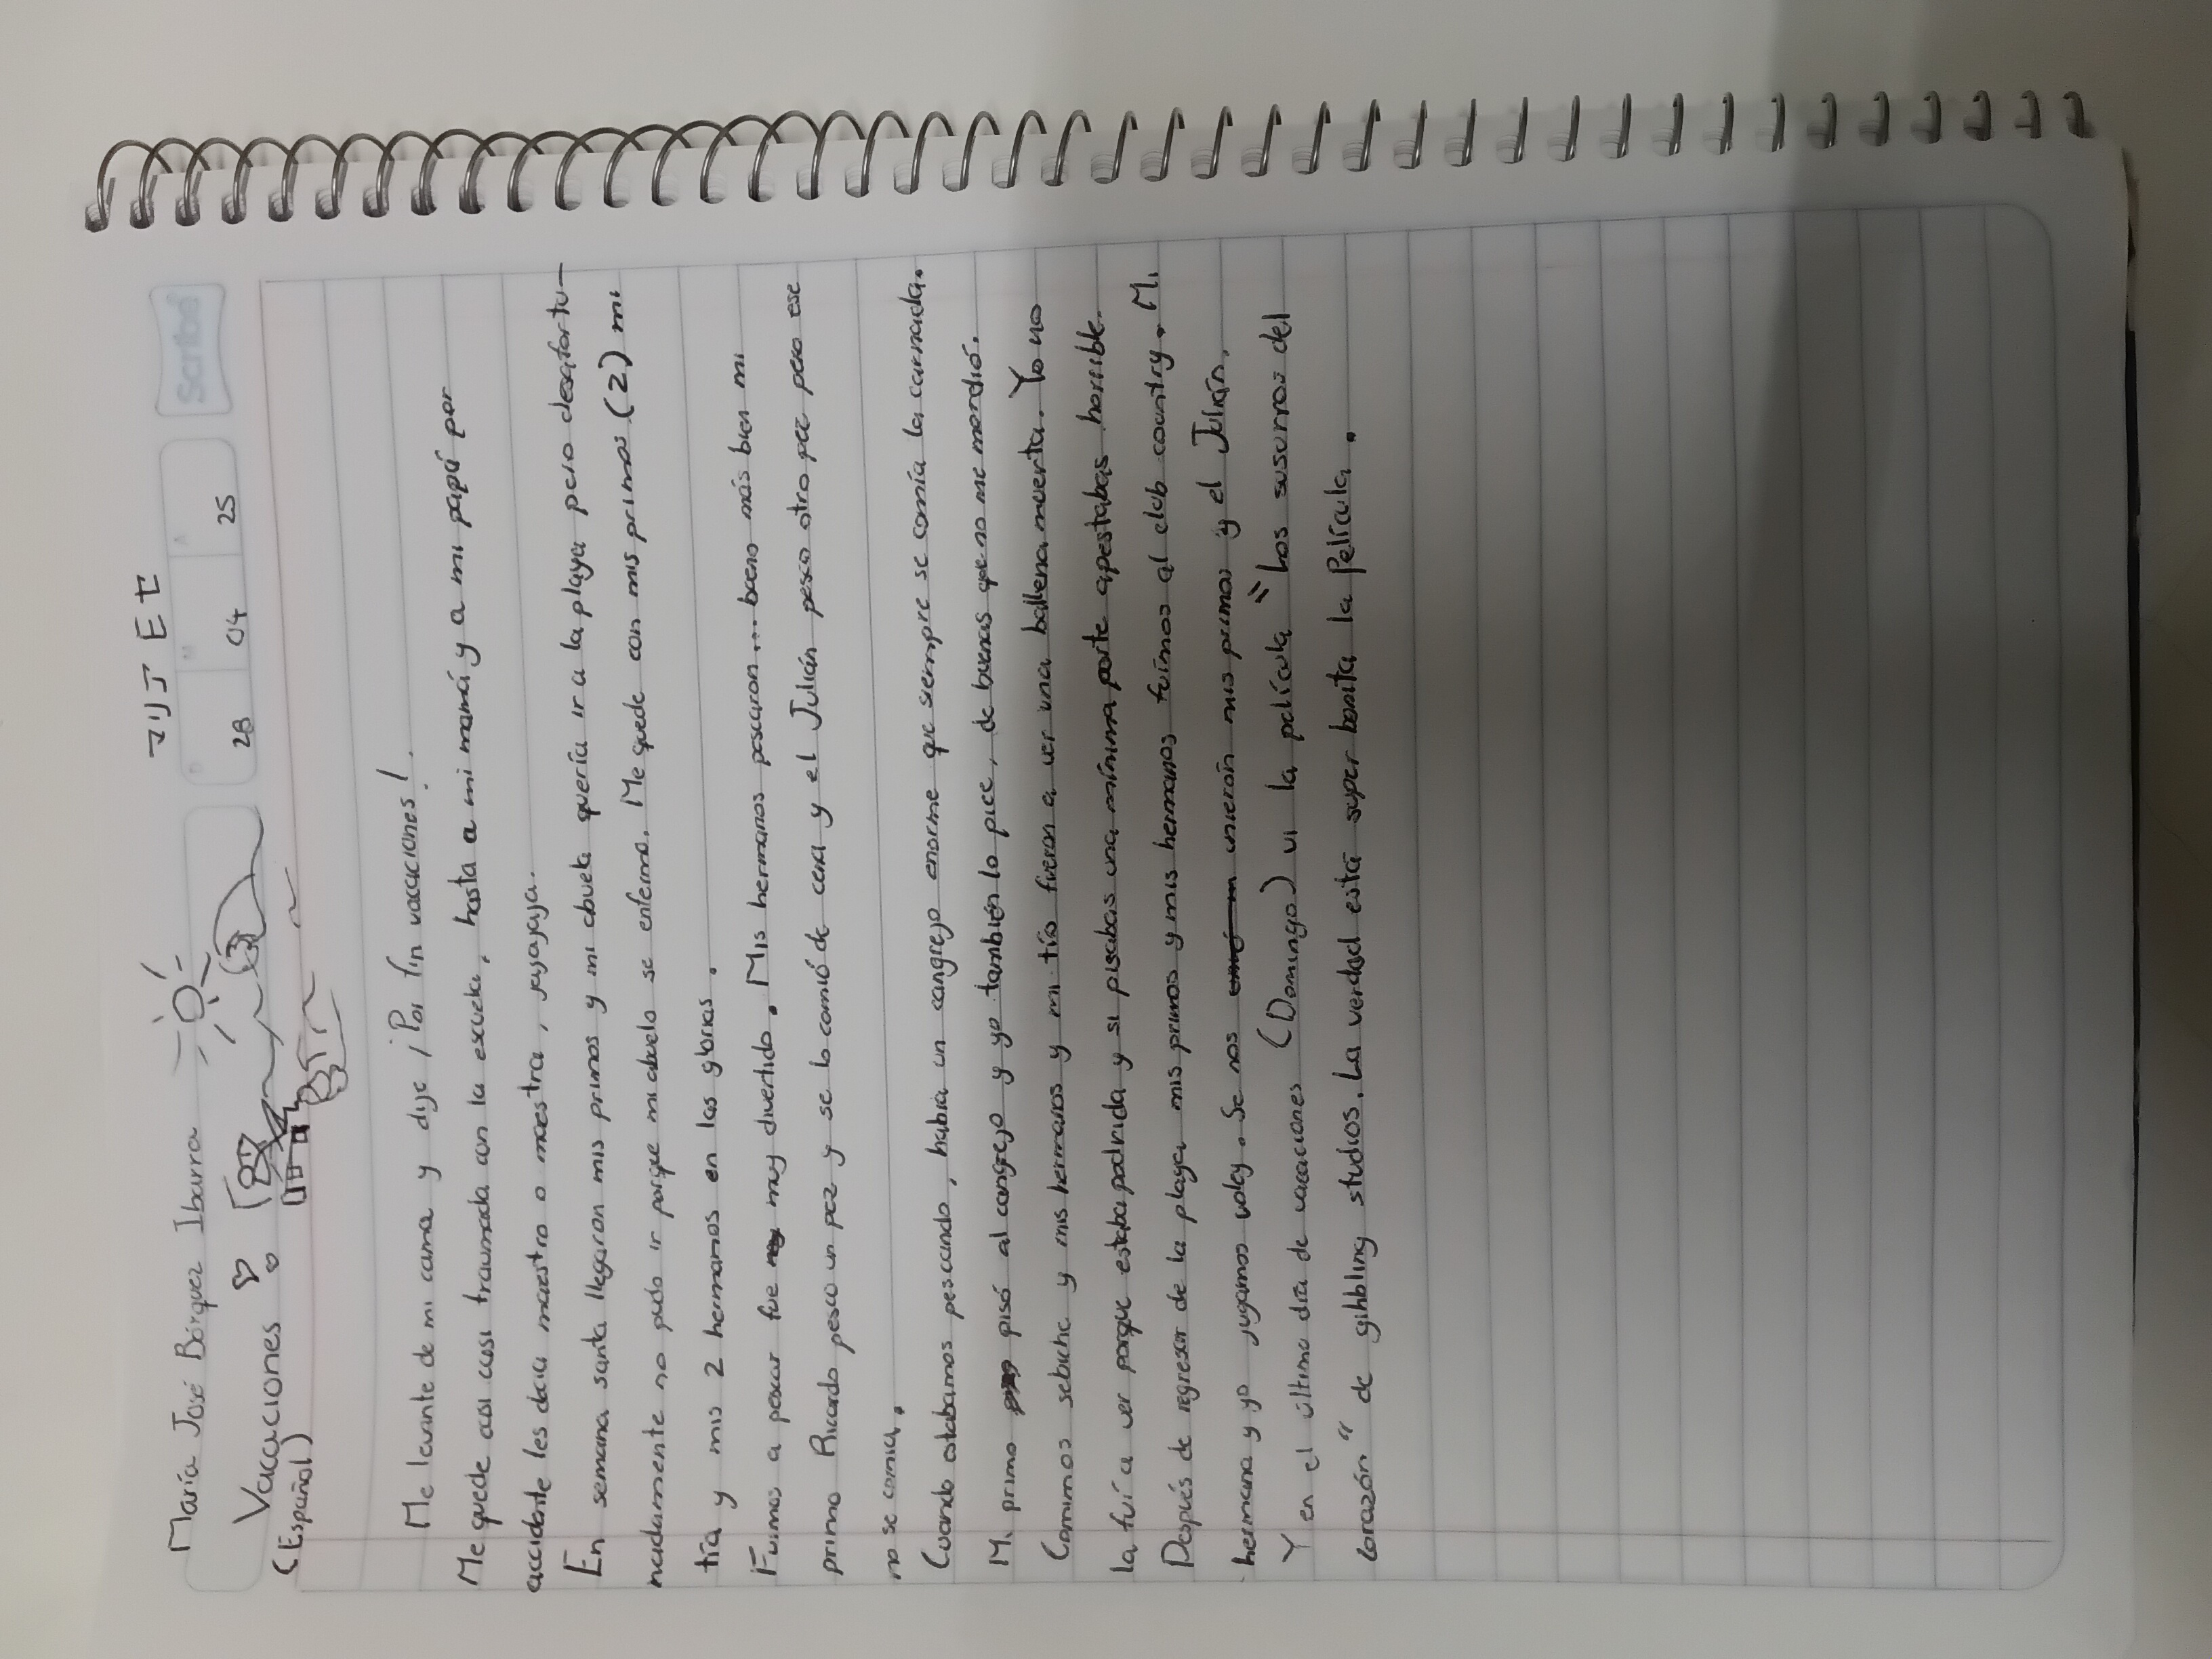 マリア ヨセ
María José Bórquez Ibarra
D M A
28 04 25
Scribe
Vacaciones
(Español)
Me levante de mi cama y dije ¡Por fin vacaciones!.
Me quede casi casi traumada con la escuela, hasta a mi mamá y a mi papá por
accidente les decia maestro o maestra, jajajaja.
En semana santa llegaron mis primos y mi abuela quería ir a la playa pero desafortu-
nadamente no pudo ir porque mi abuelo se enfermo. Me quede con mis primos (2) mi
tía y mis 2 hermanos en las glorias.
Fuimos a pescar fue muy divertido. Mis hermanos pescaron... bueno más bien mi
primo Ricardo pesco un pez y se lo comió de cena y el Julián pesco otro pez pero ese
no se comia.
Cuando estabamos pescando, había un cangrejo enorme que siempre se comía la carnada.
Mi primo pisó al cangrejo y yo también lo pice, de buenas que no me mordió.
Comimos sebiche y mis hermanos y mi tío fueron a ver una ballena muerta. Yo no
la fuí a ver porque estaba podrida y si pisabas una mínima parte apestabas horrible.
Después de regresar de la playa mis primos y mis hermanos fuímos al club country. Mi
hermana y yo jugamos voley. Se nos unieron mis primos y el Julián.
Y en el último día de vacaciones (Domingo) vi la película "Los susurros del
corazón" de gihbling studios. La verdad está super bonita la Película.